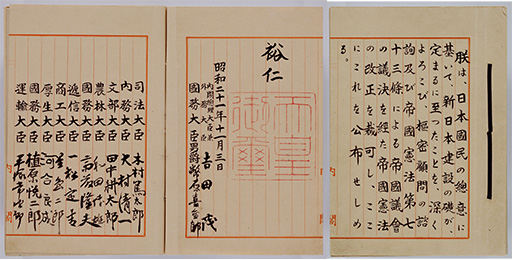 朕は、日本國民の總意に
基いて、新日本建設の礎が、
定まるに至つたことを、深く
よろこび、樞密顧問の諮
詢及び帝國憲法第七
十三條による帝國議會
の議決を經た帝國憲法
の改正を裁可し、ここ
にこれを公布せしめ
る。
內閣
裕仁
天皇
御璽
昭和二十一年十一月三日
內閣總理大臣兼
外務大臣 吉田茂
國務大臣 男爵 幣原喜重郎
內閣
司法大臣 木村篤太郎
內務大臣 大村清一
文部大臣 田中耕太郎
農林大臣 和田博雄
國務大臣 斎藤隆夫
遞信大臣 一松定吉
商工大臣 星島二郎
厚生大臣 河合良成
國務大臣 植原悦二郎
運輸大臣 平塚常次郎
內閣